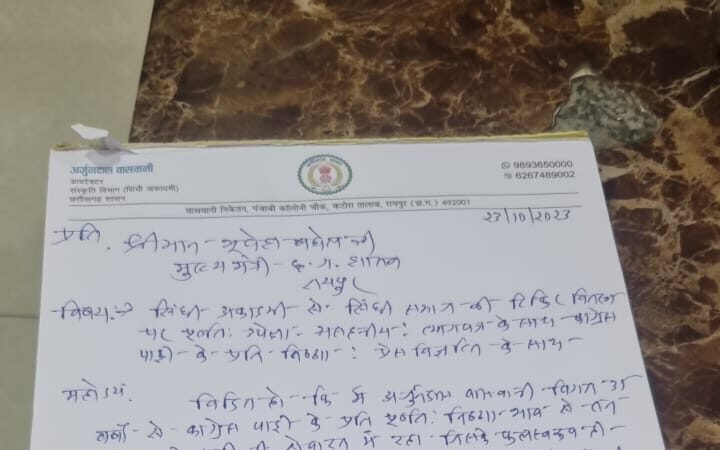 अर्जुनदास वासवानी
डायरेक्टर
संस्कृति विभाग (सिंधी अकादमी)
छत्तीसगढ़ शासन
9893650000
6267489002
वासवानी निकेतन, पंजाबी कॉलोनी चौक, कटोरा तालाब, रायपुर (छ.ग.) 492001
23/10/2023
प्रति, श्रीमान - भूपेश बघेल जी
मुख्य मंत्री - छ.ग. शासन
रायपुर
विषय :- सिंधी अकादमी - से - सिंधी समाज की टिकिट वितरण
पर उपेक्षा - त्यागपत्र के साथ - कांग्रेस
पार्टी - के - प्रति - निष्ठा - : प्रेस विज्ञप्ति - के साथ -
महोदय, विदित हो - कि मैं अर्जुनदास वासवानी विगत 35
वर्षो - से - कांग्रेस पार्टी के प्रति निष्ठा - भाव - से - तन
सेवारत में रहा जिसके फलस्वरूप ही -